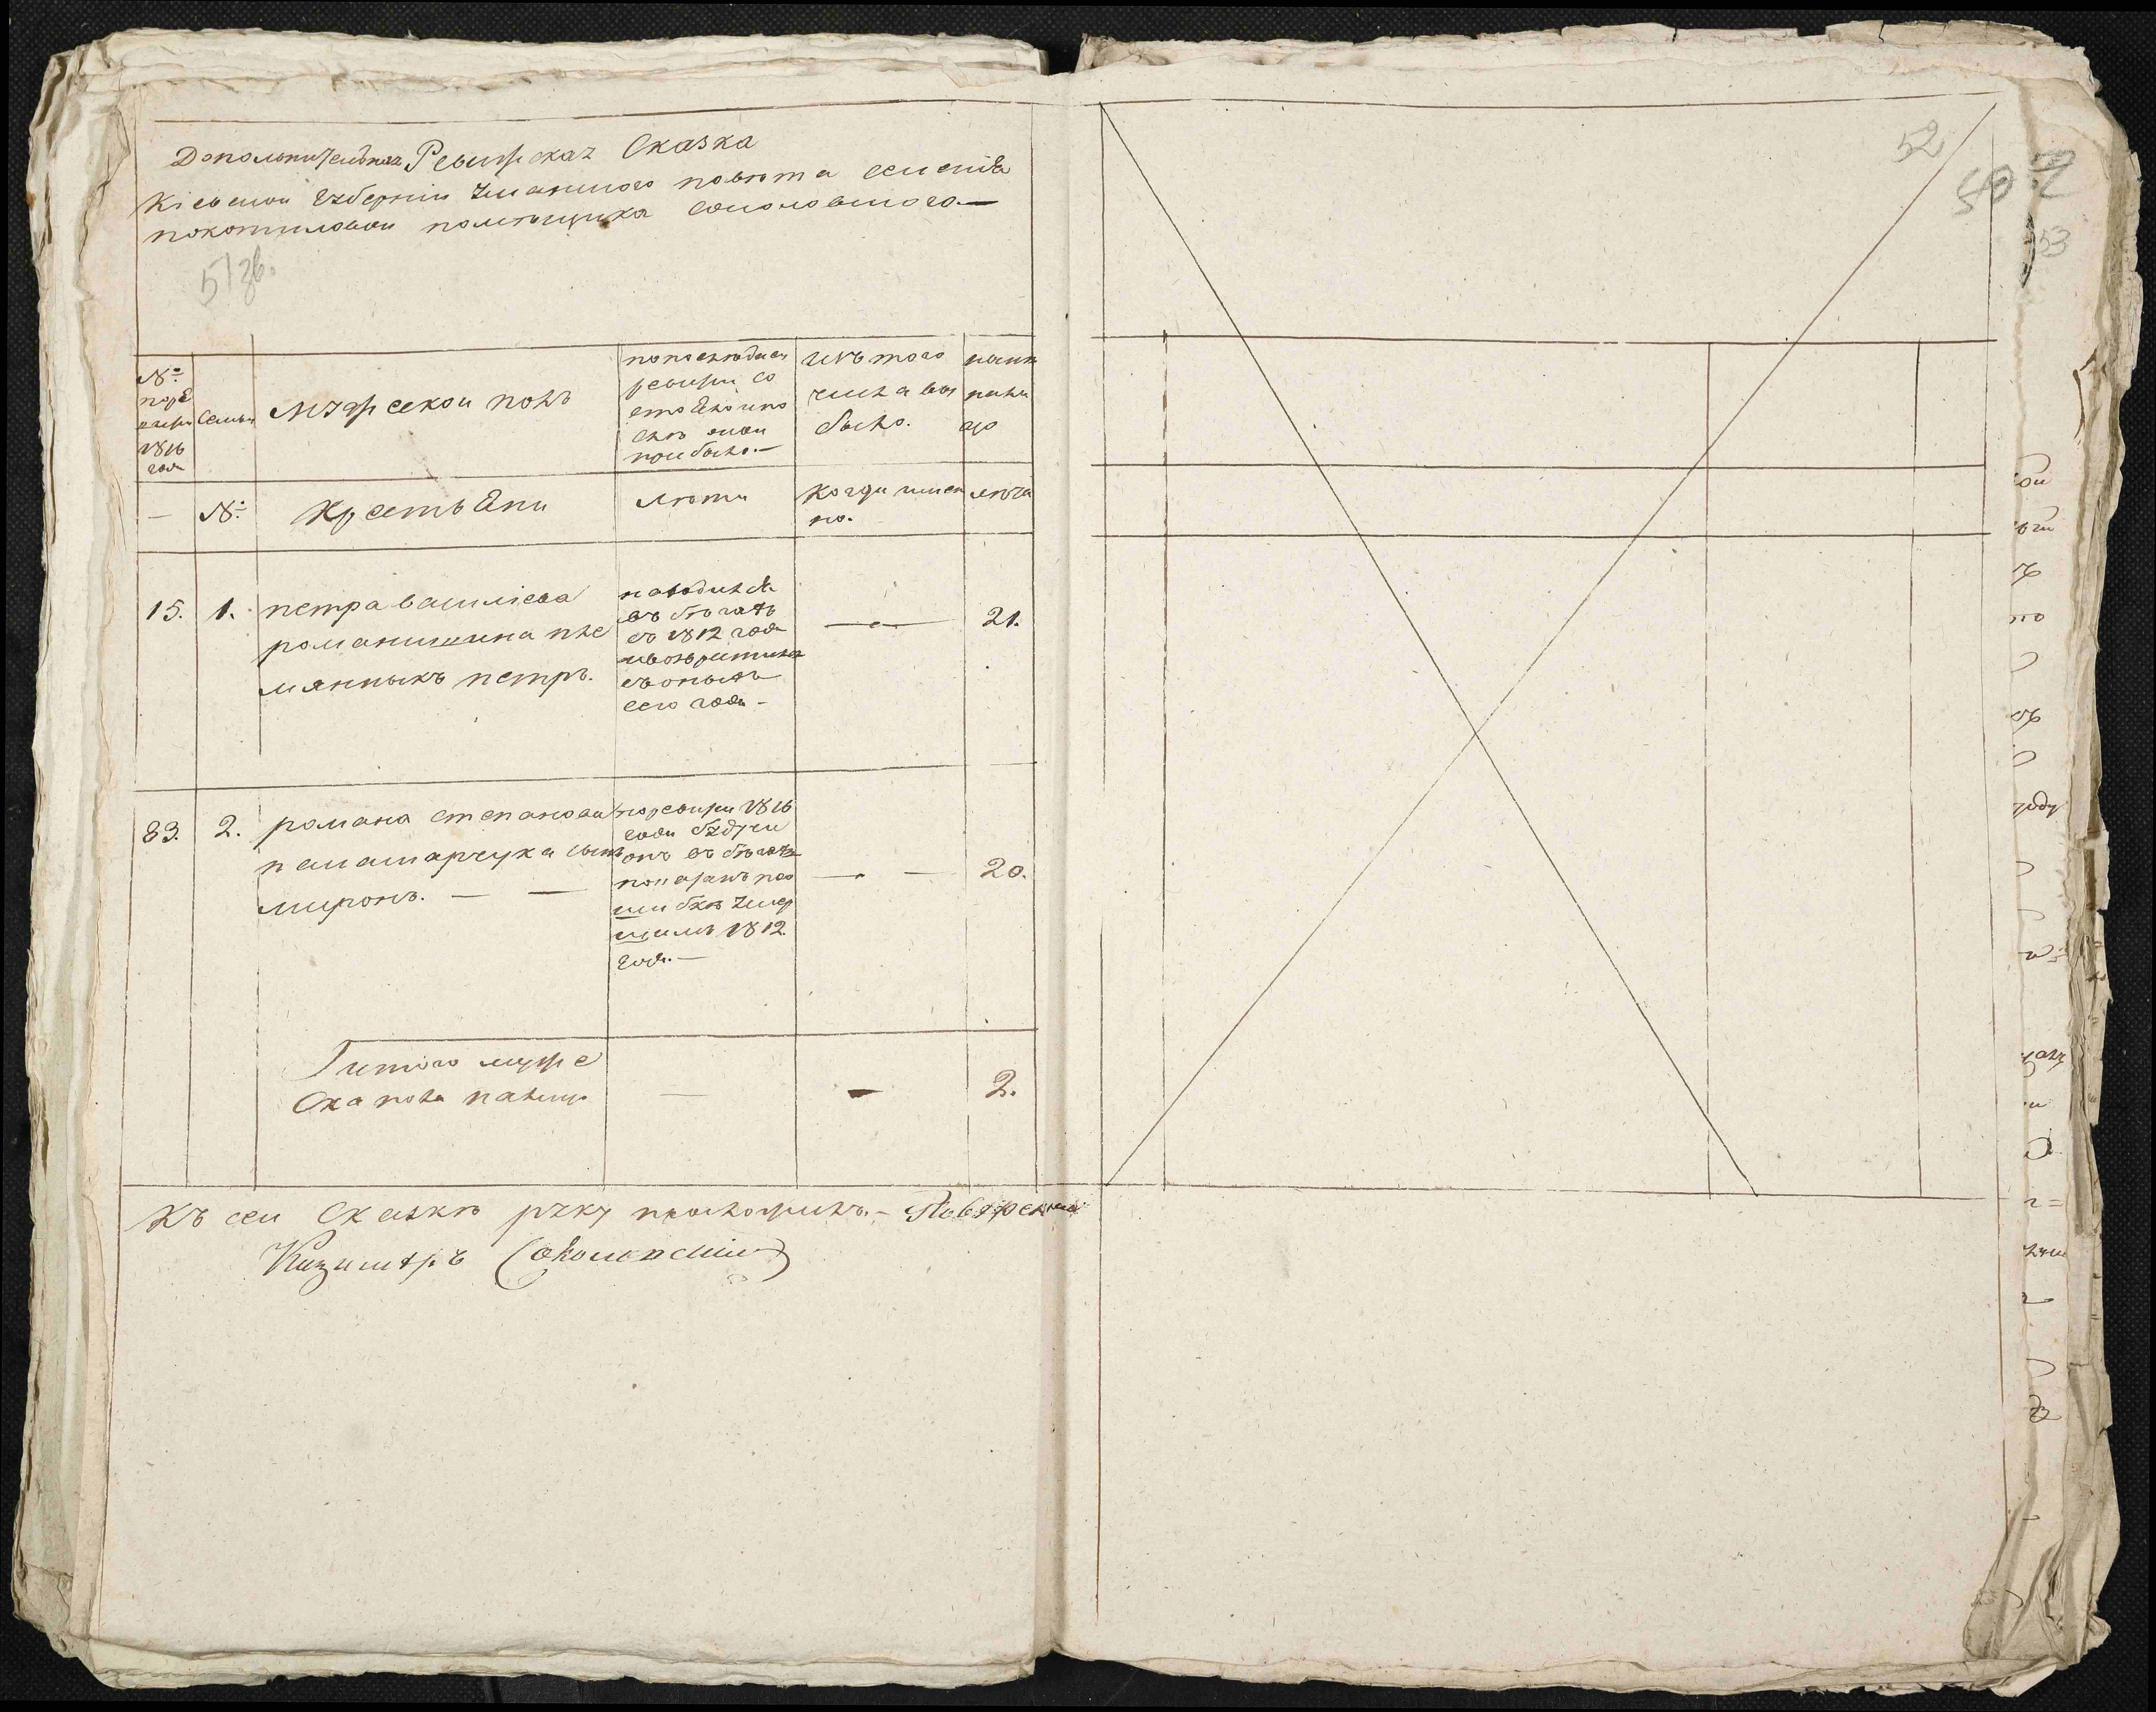 Дополнителная Ревизская Сказка
Кіевской Губерніи Уманского повета селенія
покотиловки помещика
51зв.
№:
по ре
визіи
1816
года
Семьи
Мужеской полъ
по последней
ревизіи со
стояло и по
сле оной
прибыло.—
изъ того
числа вы
было.
ныне
нали
цо
—
№:
Крестьяни
лета
когда имен
но.
лета
15.
1.
петра василіева
романишина пле
мянныкъ петръ.
находился
въ бегахъ
съ 1812 года
и возвратился
съ оныхъ
сего года —
—
21.
83.
2.
романа степанова
паламарчука сынъ
миронъ. — —
по ревизіи 1816
года будучи
онъ въ бегахъ
показанъ по о
шибке умер
шимъ 1812
года.—
— —
20.
Итого муже
ска пола налицо
—
—
2.
Къ сей Сказке руку приложилъ.— Поверенный
Казимиръ
52
53